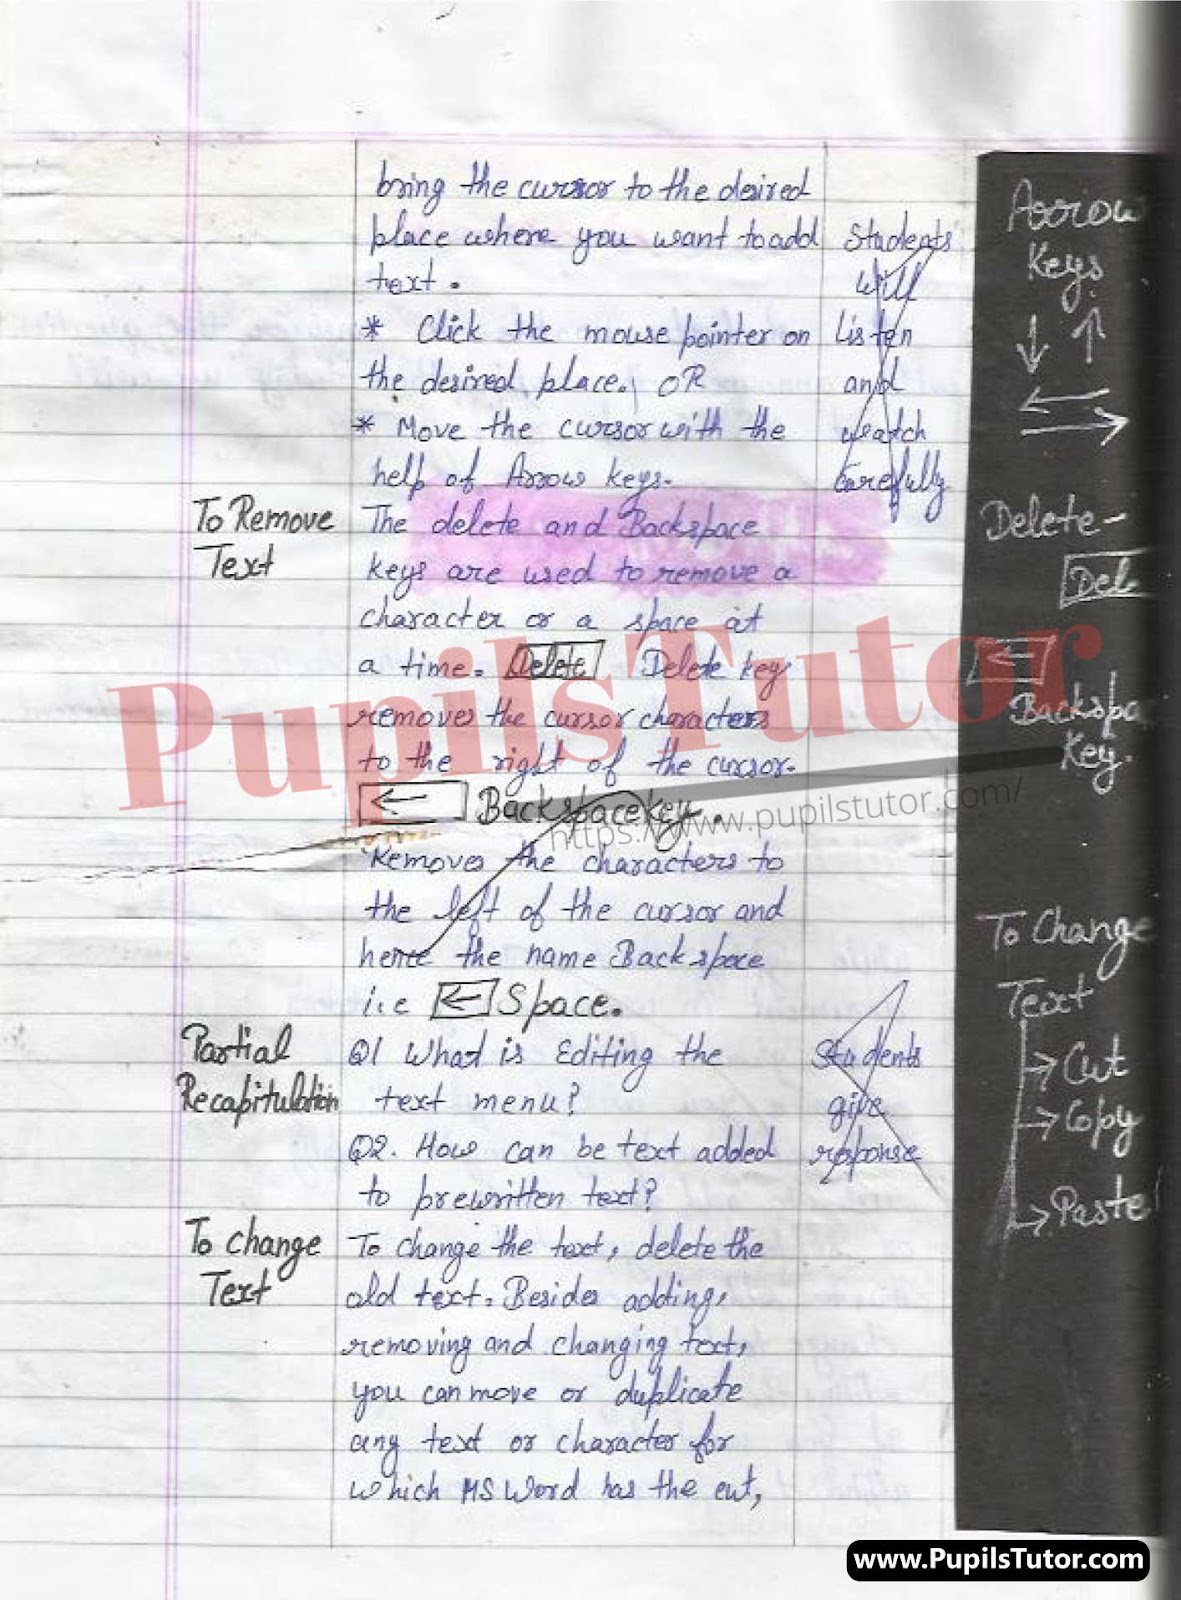 bring the cursor to the desired
place where you want to add
text.
* Click the mouse pointer on
the desired place. OR
* Move the cursor with the
help of Arrow keys.
Students
will
listen
and
watch
carefully
Arrow
Keys
To Remove
Text
The delete and Backspace
keys are used to remove a
character or a space at
a time. Delete Delete key
removes the cursor characters
to the right of the cursor.
← Backspace key.
Removes the characters to
the left of the cursor and
hence the name Backspace
i.e ← Space.
Delete-
Del
←
Backspa
Key.
Partial
Recapitulation
Q1 What is Editing the
text menu?
Q2. How can be text added
to prewritten text?
Students
give
response
To Change
Text
→ Cut
→ Copy
→ Paste
To Change
Text
To change the text, delete the
old text. Besides adding,
removing and changing text,
you can move or duplicate
any text or character for
which MS Word has the cut,
PupilsTutor
https://www.pupilstutor.com/
www.PupilsTutor.com